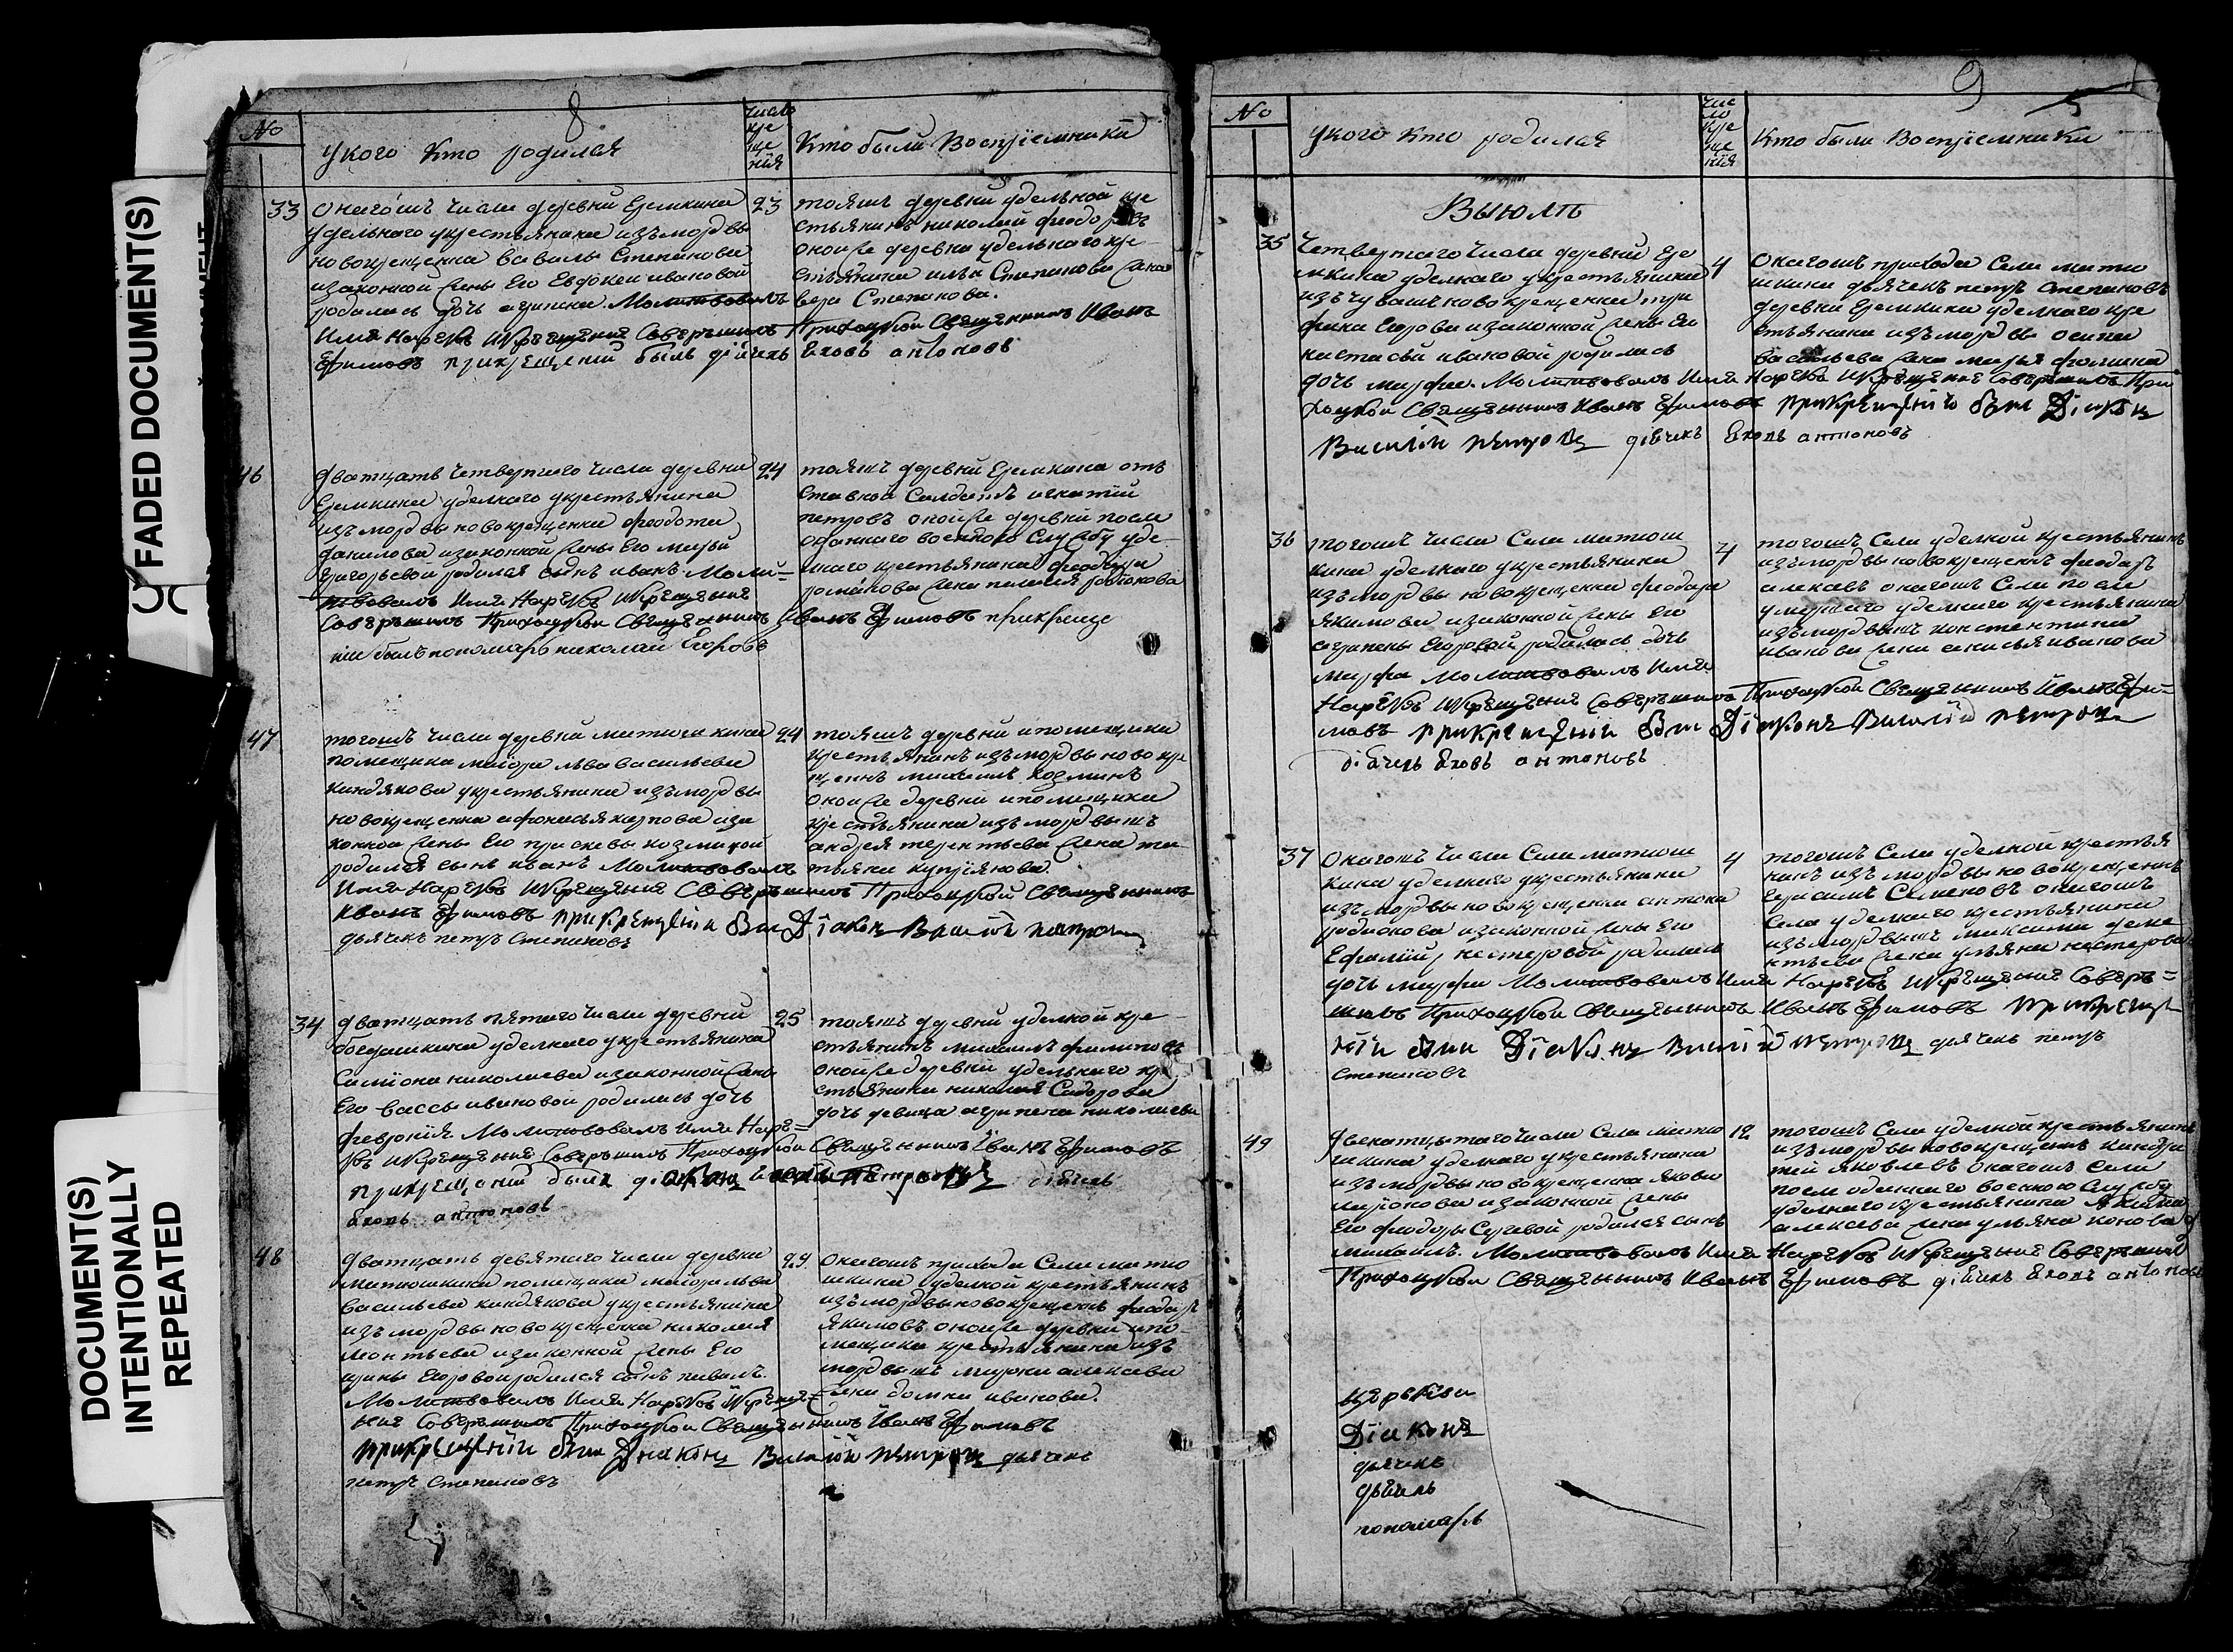 FADED DOCUMENT(S)
DOCUMENT(S)
INTENTIONALLY
REPEATED
8
No
укого кто родился
число
кре
ще
ния
Кто были Восприемники
33
онагожъ числа деревни Еремкина
удельнаго укрестьянина изъмордвы
новокрещенна вавилы Степанова
изаконной жены Его Евдокеи ивановой
родилась дочь агрипина. Молитвовалъ
Имя Нарекъ Икрещение Совершилъ Приходской Священникъ Иванъ
Ефимовъ прикрещении былъ дiячекъ Яковъ антоновъ
23
тояжъ деревни удельной кре
стьянинъ николай феодоровъ
оной же деревни удельнаго кре
стьянина ильи Степанова жена
вера Степанова.
46
дватцать четвертаго числа деревни
Еремкина уделнаго укрестьянина
изъмордвы новокрещенна феодота
данилова изаконной жены Его марьи
григорьевой родился сынъ иванъ. Моли=
твовалъ Имя Нарекъ Икрещение
Совершилъ Приходской Священникъ Иванъ Ефимовъ прикреще
нiи былъ пономарь николай Егоровъ
24
тояжъ деревни Еремкина отъ
ставной Салдатъ игнатiй
петровъ оной же деревни после
отданнаго военную Службу уде
лнаго крестьянина феодора
романова жена пелагея родионова
47
тогожъ числа деревни матюшкина
помещика маiора льва васильева
киндякова укрестьянина изъмордвы
новокрещенна афонасья карпова иза
конной жены Его прасковьи козминой
родился сынъ иванъ Молитвовалъ
Имя Нарекъ Икрещение Совершилъ Приходской Священникъ
Иванъ Ефимовъ прикрещенiи былъ Дiаконъ Василiй петровъ
дьячекъ петръ Степановъ
24
тояжъ деревни ипомещика
крестьянинъ изъмордвы новокре
щеннъ михаилъ козминъ
оной же деревни ипомещика
крестьянина изъ мордвыжъ
андрея терентьева жена та
тьяна куприянова.
34
дватцать пятаго числа деревни
богдашкина уделнаго укрестьянина
Симiона николаева изаконной жены
Его вассы ивановой родилась дочь
феврония. Молитвовалъ Имя Наре=
къ Икрещение Совершилъ Приходской Священникъ Иванъ Ефимовъ
прикрещении былъ дiаконъ петровъ дiячекъ
Яковъ антоновъ
25
тояжъ деревни уделной кре
стьянинъ михаилъ филиповъ
оной же деревни удельнаго кре
стьянина николая Сидорова
дочь девица агрипена николаева
48
дватцать девятаго числа деревни
матюшкина помещика маiора льва
васильева киндякова укрестьянина
изъ мордвы новокрещенна николая
леонтьева изаконной жены Его
ирины Егоровой родился сынъ павелъ.
Молитвовалъ Имя Нарекъ Икреще=
ние Совершилъ Приходской Священникъ Иванъ Ефимовъ
прикрещенiи былъ Диаконъ Василiй петровъ дьячекъ
петръ Степановъ
29.
онагожъ прихода Села матю
шкина уделной крестьянинъ
изъмордвы новокрещеннъ феодоръ
якимовъ оной же деревни ипо
мещика крестьянина изъ
мордвыжъ марки алексеева
жена домна иванова.
9
5
No
укого кто родился
чис
ло
кре
ще
ния
Кто были Восприемники
Въиюлѣ
35
Четвертаго числа деревни Ере
мкина уделнаго укрестьянина
изъчувашъ новокрещенна три
фана Егорова изаконной жены Его
настасьи ивановой родилась
дочь марфа. Молитвовалъ Имя Нарекъ Икрещение Совершилъ При
ходской Священникъ Иванъ Ефимовъ прикрещенiи былъ Дiаконъ
Василiй петровъ дiячекъ Яковъ антоновъ
4
онагожъ прихода Села матю
шкина дьячекъ петръ Степановъ
деревни Еремкина уделнаго кре
стьянина изъмордвы осипа
васильева жена марья фомина
36
тогожъ числа Села матюш
кина уделнаго укрестьянина
изъмордвы новокрещенна феодора
якимова изаконной жены Его
агрипены Егоровой родилась дочь
марфа Молитвовалъ Имя
Нарекъ Икрещение Совершилъ Приходской Священникъ Иванъ Ефи=
мовъ прикрещенiи былъ Дiаконъ Василiй петровъ
дiячекъ Яковъ антоновъ
4
тогожъ Села уделной крестьянинъ
изъмордвы новокрещеннъ феодоръ
онагожъ Села после
умершаго уделнаго крестьянина
изъмордвыжъ константина
иванова жена анисья иванова
37
онагожъ числа Села матюш
кина уделнаго укрестьянина
изъмордвы новокрещенна антона
родионова изаконной жены Его
Ефимiи нестеровой родилась
дочь марфа Молитвовалъ Имя Нарекъ Икрещение Совер=
шилъ Приходской Священникъ Иванъ Ефимовъ прикреще
нiи былъ Дiаконъ Василiй петровъ дьячекъ петръ
Степановъ
4
тогожъ Села уделной крестья
нинъ изъ мордвы новокрещеннъ
герасимъ Семеновъ онагожъ
Села уделнаго крестьянина
изъмордвыжъ максима деме
нтьева жена ульяна нестерова
49
двенатцатаго числа Села матю
шкина уделнаго укрестьянина
изъмордвы новокрещенна якова
миронова изаконной жены
Его феодоры Сергевой родился сынъ
михаилъ. Молитвовалъ Имя Нарекъ Икрещение Совершилъ
Приходской Священникъ Иванъ Ефимовъ дiячекъ Яковъ антоновъ
12
тогожъ Села уделной крестьянинъ
изъмордвы новокрещеннъ кондра
тей яковлевъ онагожъ Села
после отданнаго военную Службу
уделнаго крестьянина никиты
алексева жена ульяна конова
церкви
Дiаконъ
дьячекъ
дьячекъ
пономарь